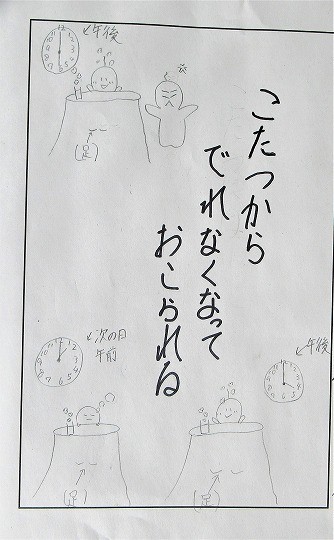 こたつから
でれなくなって
おこられる
午後
(足)
午後
(足)
次の日
午前
(足)